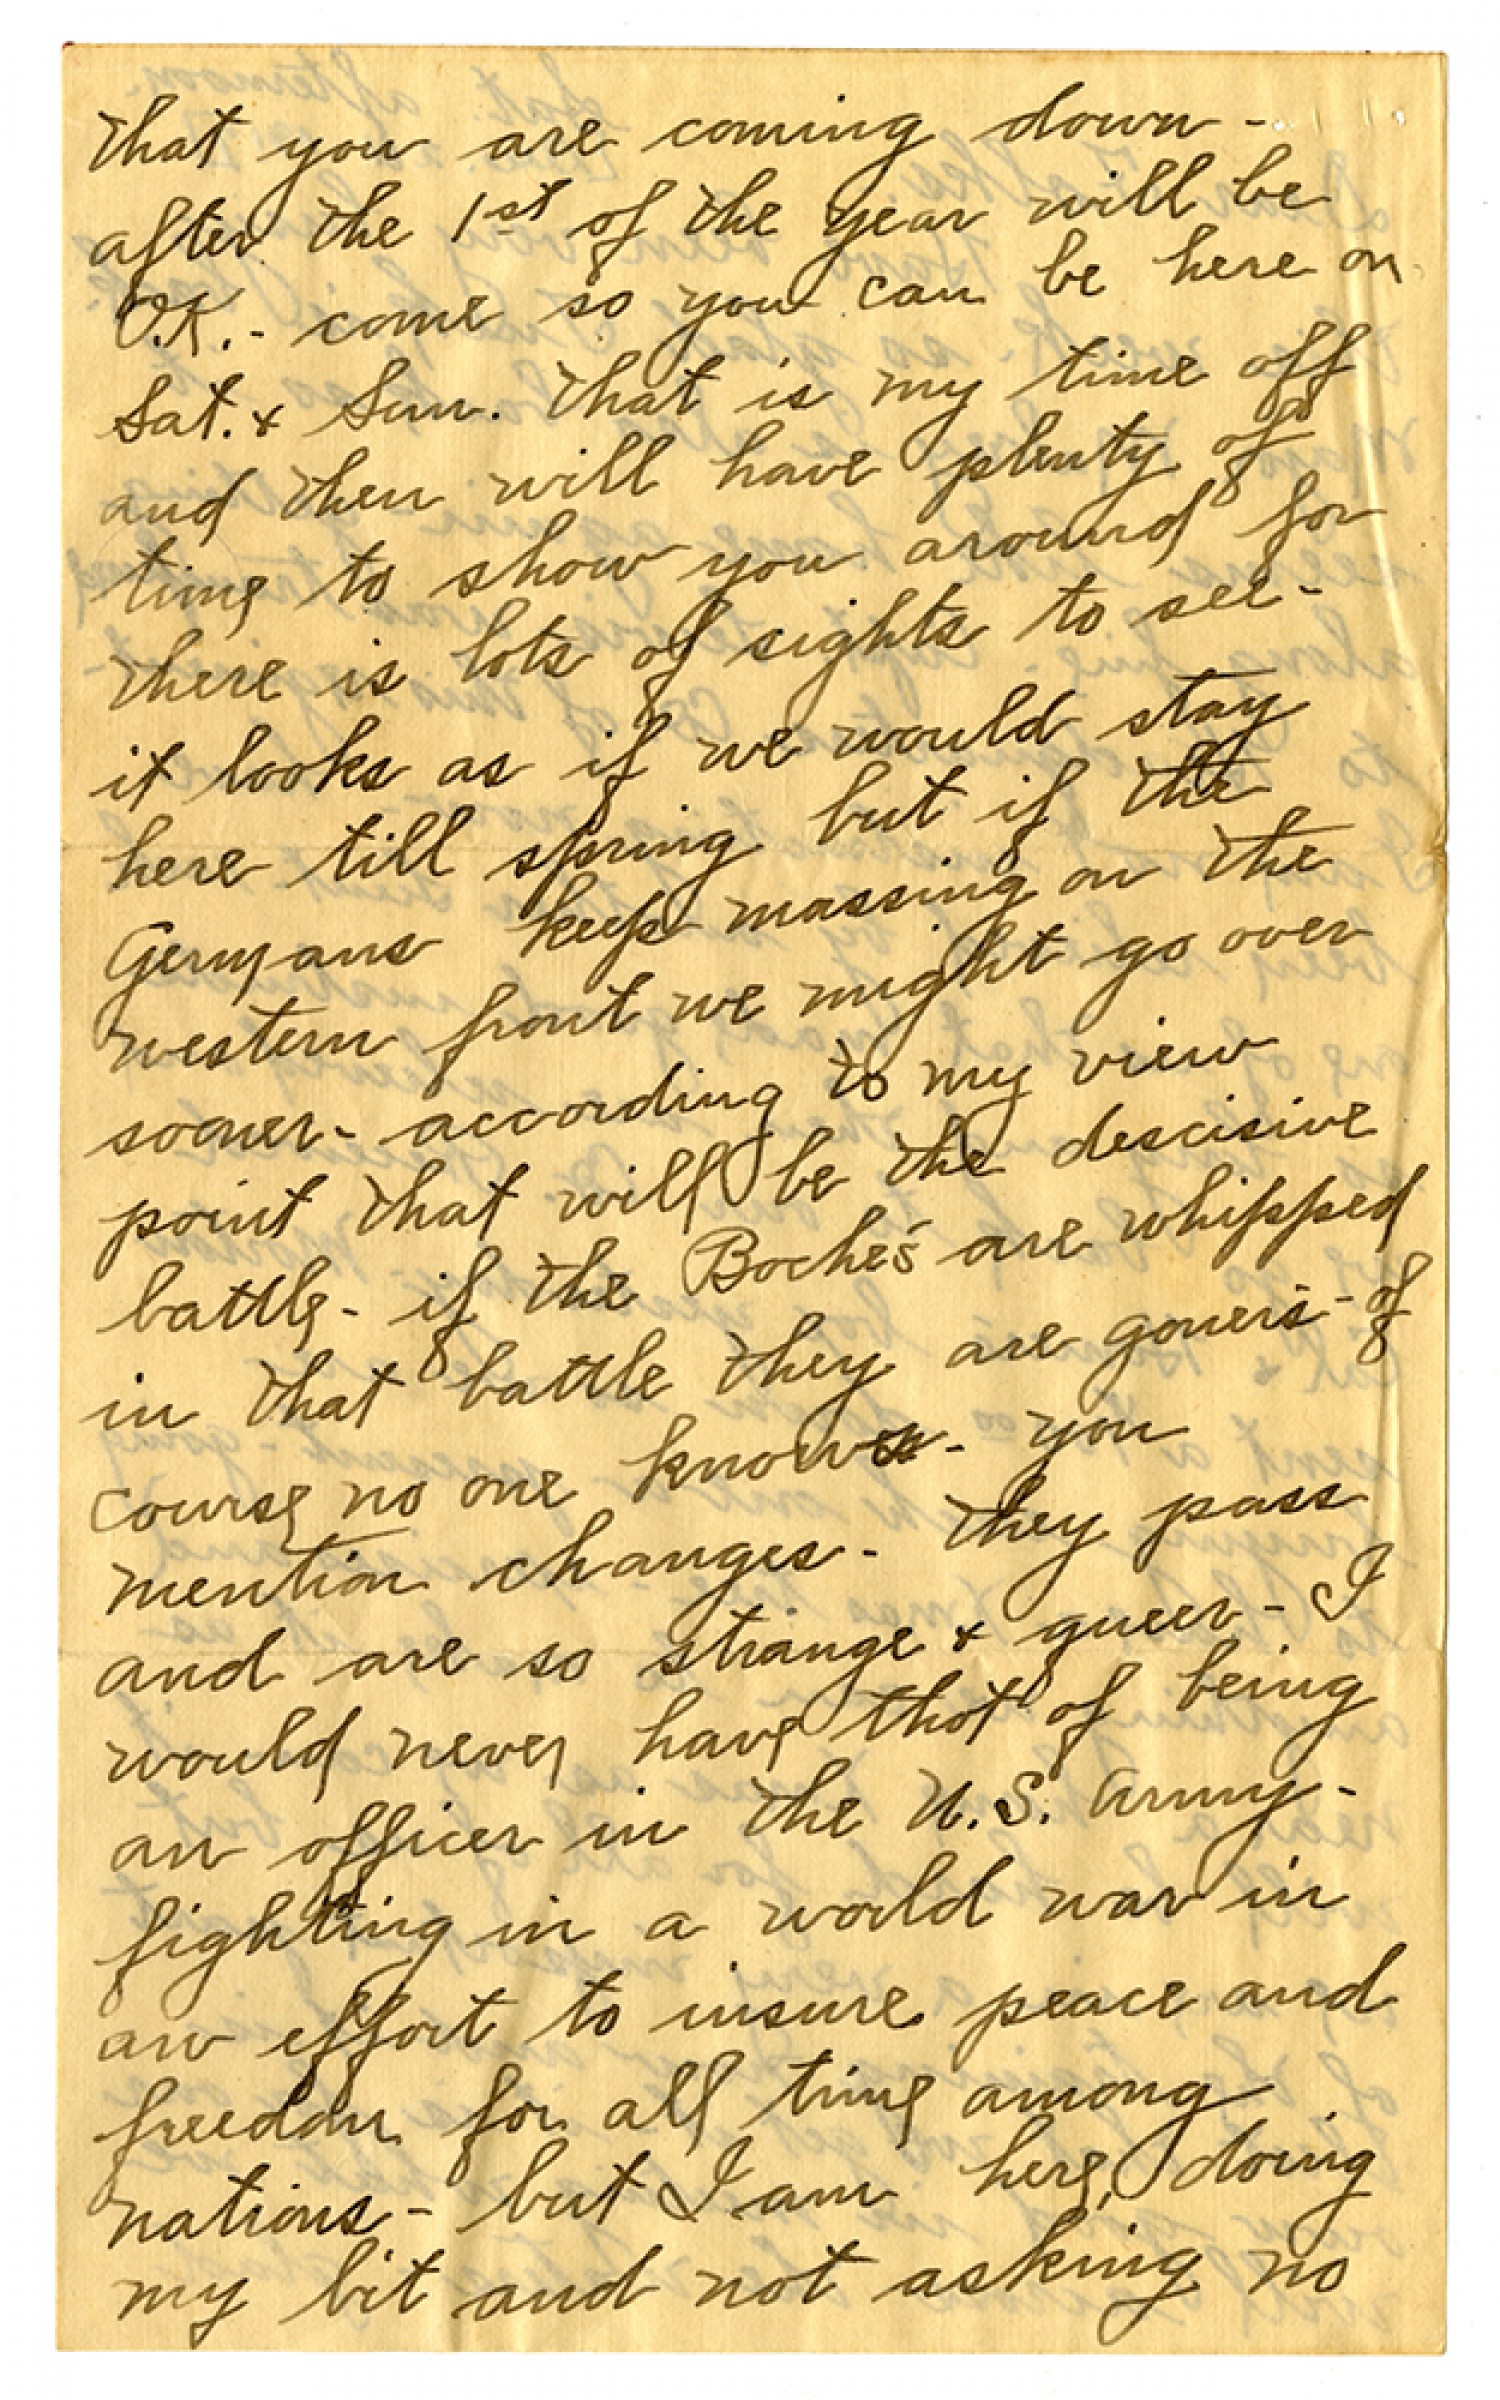 that you are coming down -
after the 1st of the year will be
O.K. - come so you can be here on
Sat. & Sun. that is my time off
and then will have plenty of
time to show you around for
there is lots of sights to see -
it looks as if we would stay
here till spring but if the
Germans keep massing on the
western front we might go over
sooner - according to my view
point that will be the descisive
battle - if the Boche's are whipped
in that battle they are goner's - of
course no one knows - you
mention changes - they pass
and are so strange & queer - I
would never have thot of being
an officer in the U.S. Army -
fighting in a world war in
an effort to insure peace and
freedom for all time among
nations - but I am here, doing
my bit and not asking no